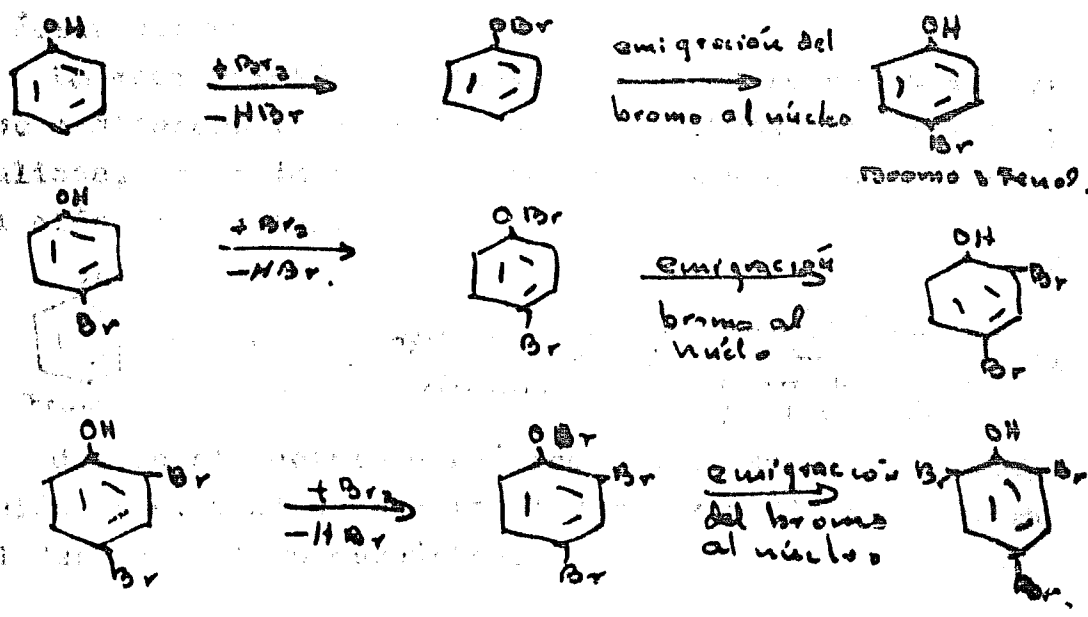 OH
+ Br2
- HBr
OBr
emigración del
bromo al núcleo
OH
Br
OH
Br
+ Br2
- HBr.
OBr
Br
emigración
bromo al
núclo
OH
Br
Br
OH
Br
Br
+ Br2
- HBr
OBr
Br
Br
emigración
del bromo
al núcleo
OH
Br
Br
Br.